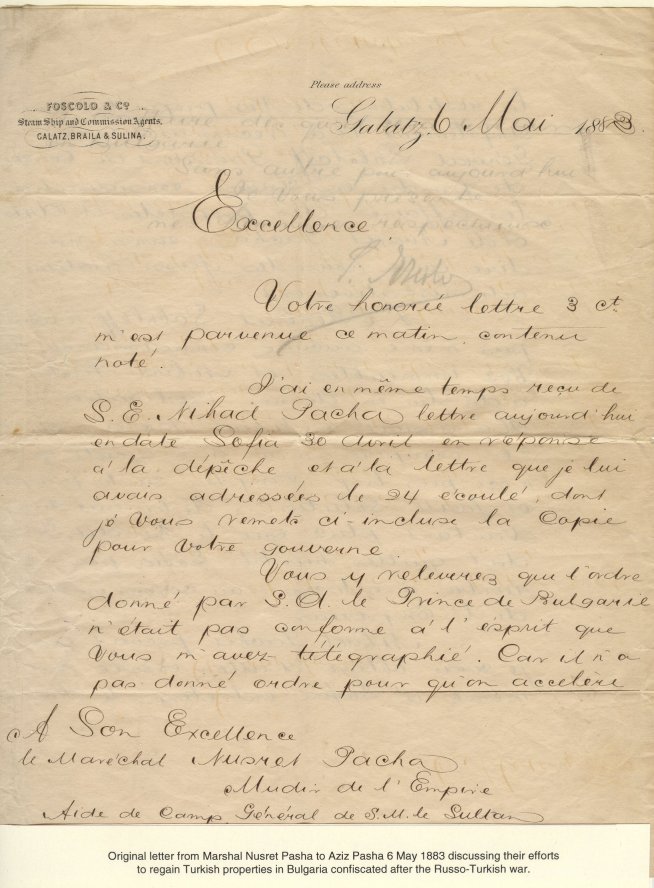 Please address
FOSCOLO & Cº
Steam Ship and Commission Agents,
GALATZ, BRAILA & SULINA.
Galatz, 6 Mai 1883.
Excellence,
Votre honorée lettre 3 ct.
m'est parvenue ce matin, contenu
noté.
J'ai en même temps reçu de
S. E. Nihad Pacha lettre aujourd'hui
en date Sofia 30 Avril en réponse
à la dépêche et à la lettre que je lui
avais adressées le 24 écoulé, dont
je vous remets ci-incluse la Copie
pour votre gouverne.
Vous y releverez que l'ordre
donné par S. A. le Prince de Bulgarie
n'était pas conforme à l'esprit que
vous m'avez télégraphié. Car il n'a
pas donné ordre pour qu'on accelère
A Son Excellence
le Maréchal Nusret Pacha
Mudir de l'Empire
Aide de Camp Général de S. M. le Sultan
Original letter from Marshal Nusret Pasha to Aziz Pasha 6 May 1883 discussing their efforts
to regain Turkish properties in Bulgaria confiscated after the Russo-Turkish war.